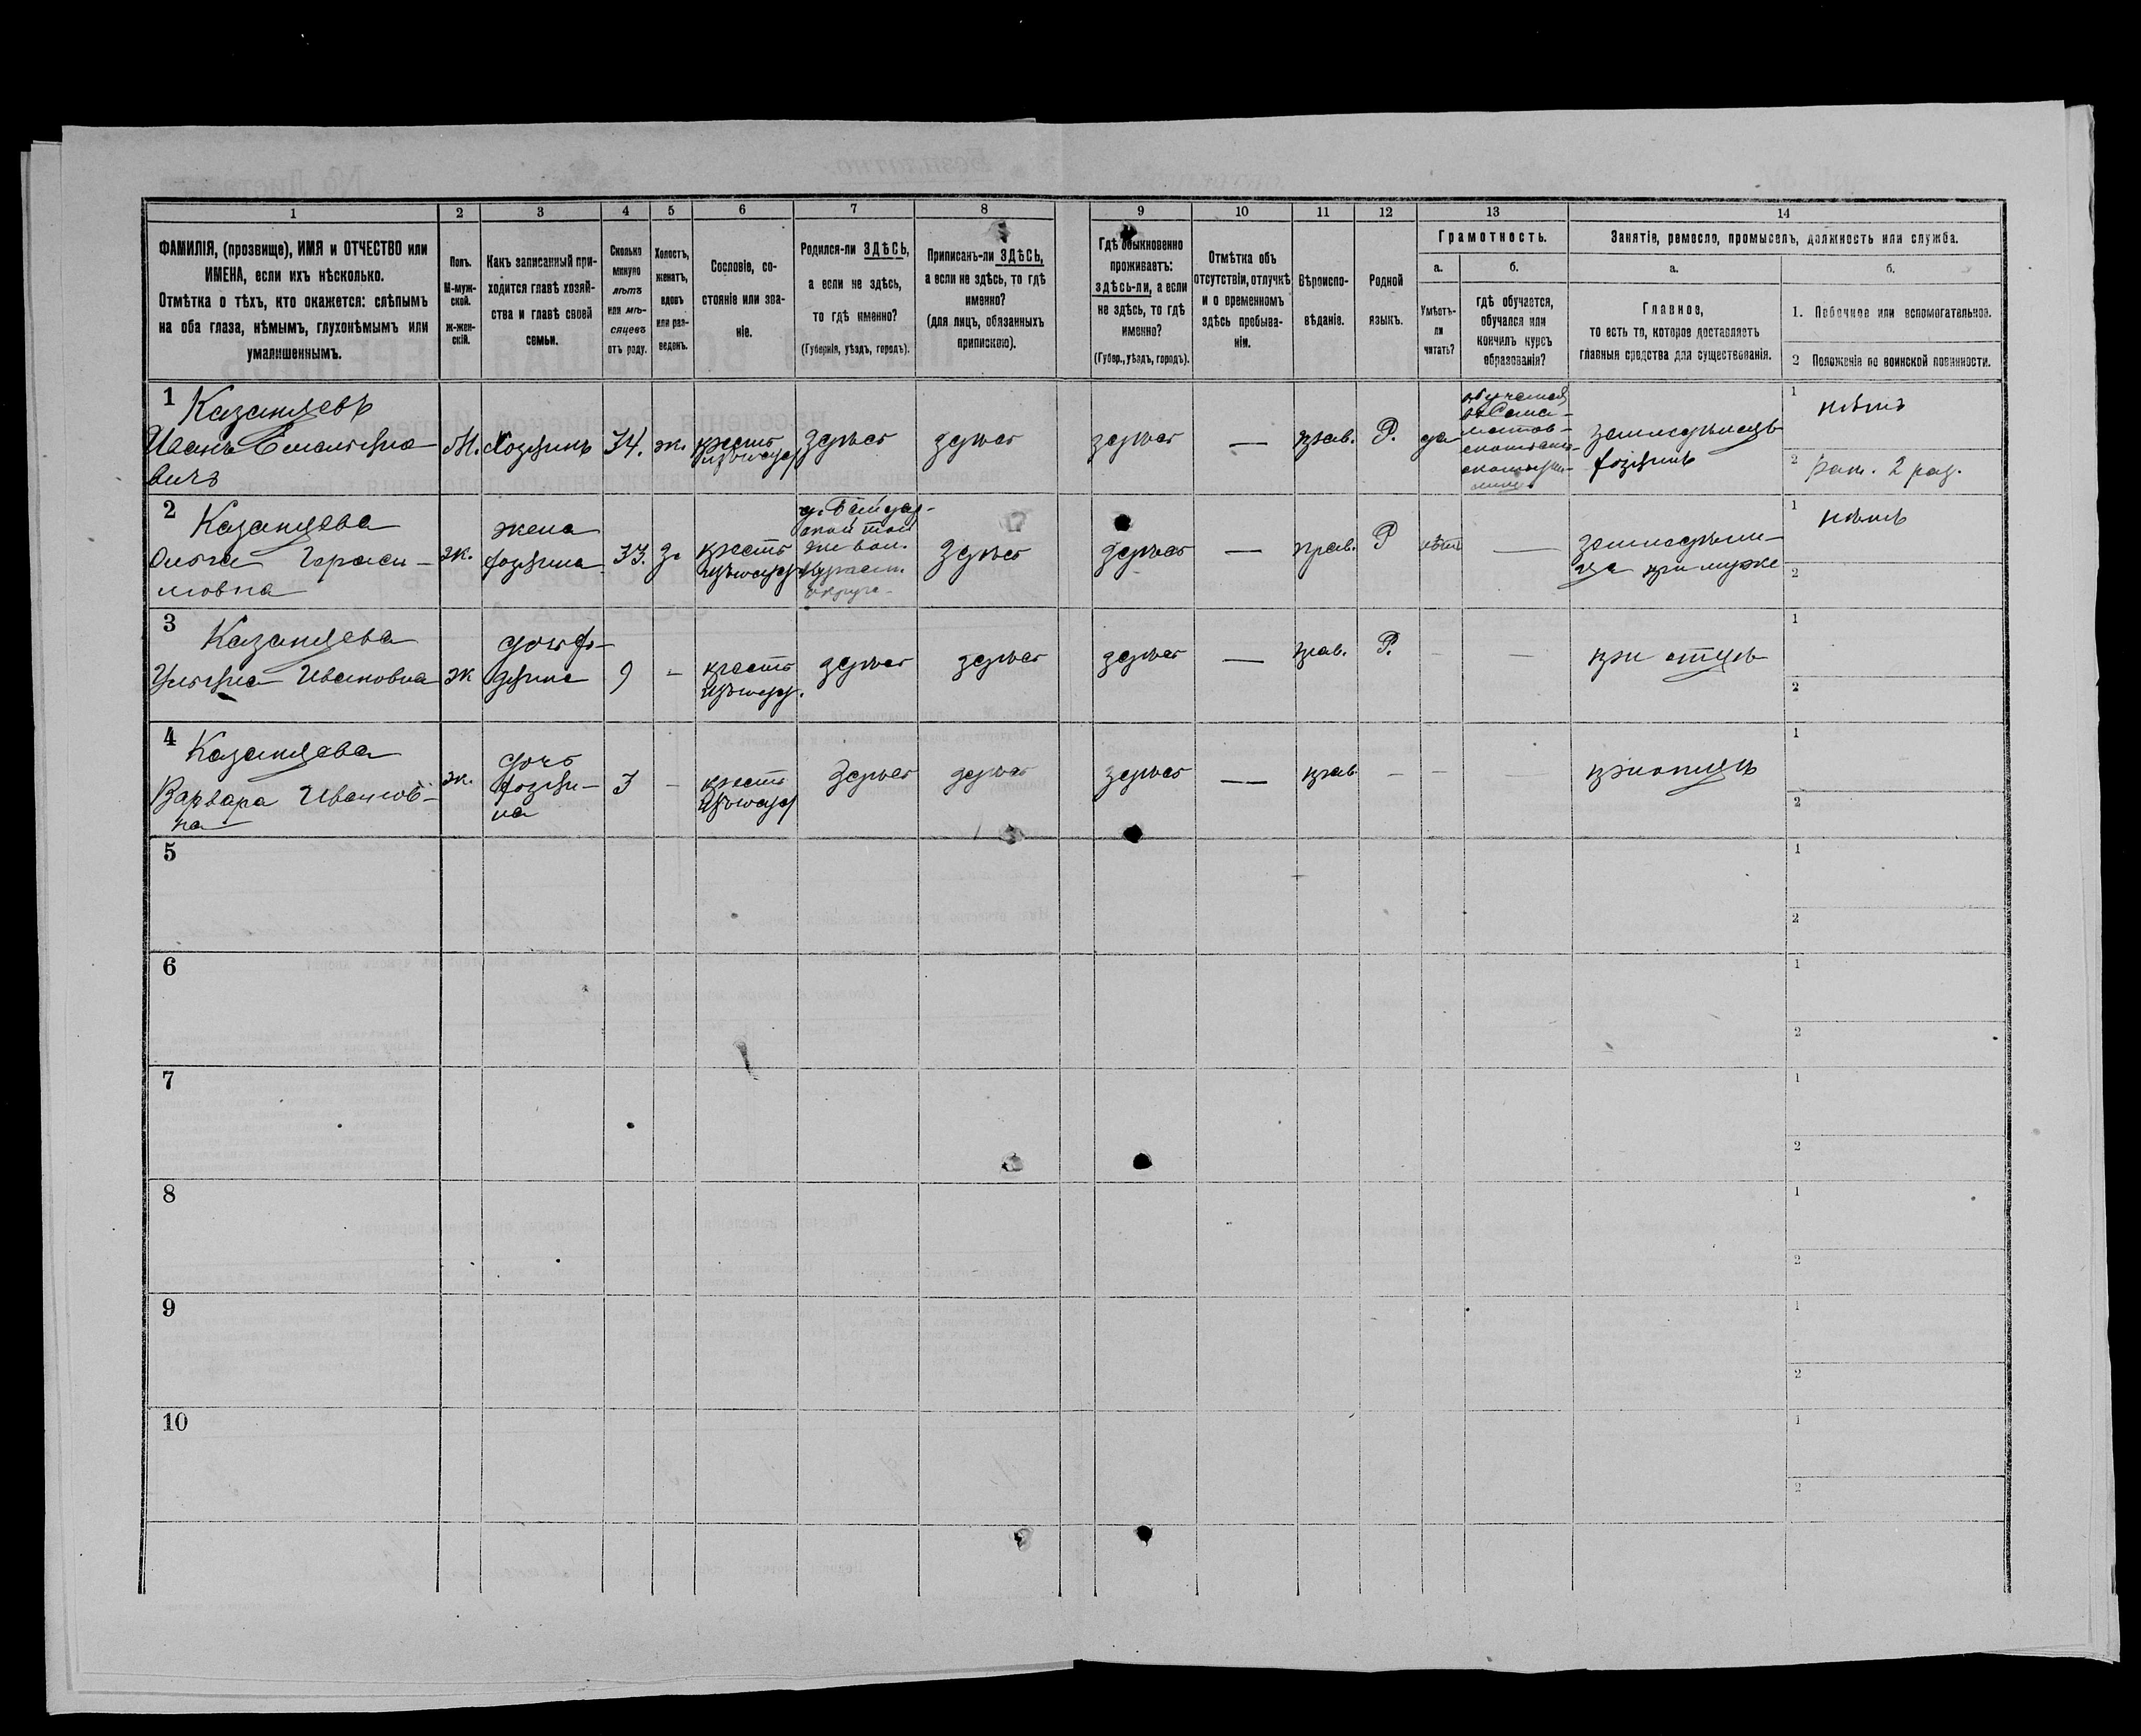 1
2
3
4
5
6
7
8
9
10
11
12
13
14
ФАМИЛІЯ, (прозвище), ИМЯ и ОТЧЕСТВО или
ИМЕНА, если ихъ нѣсколько.
Отмѣтка о тѣхъ, кто окажется: слѣпымъ
на оба глаза, нѣмымъ, глухонѣмымъ или
умалишеннымъ.
Полъ.
М-муж-
ской.
ж-жен-
скій.
Какъ записанный при-
ходится главѣ хозяй-
ства и главѣ своей
семьи.
Сколько
минуло
лѣтъ
или мѣ-
сяцевъ
отъ роду.
Холостъ,
женатъ,
вдовъ
или раз-
веденъ.
Сословіе, со-
стояніе или зва-
ніе.
Родился-ли ЗДѢСЬ,
а если не здѣсь,
то гдѣ именно?
(Губернія, уѣздъ, городъ).
Приписанъ-ли ЗДѢСЬ,
а если не здѣсь, то гдѣ
именно?
(для лицъ, обязанныхъ
припискою).
Гдѣ обыкновенно
проживаетъ:
здѣсь-ли, а если
не здѣсь, то гдѣ
именно?
(Губер., уѣздъ, городъ).
Отмѣтка объ
отсутствіи, отлучкѣ
и о временномъ
здѣсь пребыва-
ніи.
Вѣроиспо-
вѣданіе.
Родной
языкъ.
Грамотность.
а.
Умѣетъ-
ли
читать?
б.
гдѣ обучается,
обучался или
кончилъ курсъ
образованія?
Занятіе, ремесло, промыселъ, должность или служба.
а.
Главное,
то есть то, которое доставляетъ
главныя средства для существованія.
б.
1. Побочное или вспомогательное.
2 Положеніе по воинской повинности.
1
Казанцевъ
Иванъ Емельяно
вичъ
М.
Хозяинъ
34.
ж.
крест
здѣсь
здѣсь
здѣсь
—
прав.
Р.
да
земледѣлецъ
хозяинъ
1
нѣтъ
2
рат. 2 раз.
2
Казанцева
Ольга Гераси-
мовна
ж.
жена
хозяина
33.
з.
крест
здѣсь
здѣсь
—
прав.
Р
нѣтъ
—
земледѣли-
ца при муже
1
нѣтъ
2
3
Казанцева
Ульяна Ивановна
ж
дочь хо-
зяина
9
-
крест
здѣсь
здѣсь
здѣсь
—
прав.
Р.
-
—
при отцѣ
1
2
4
Казанцева
Варвара Иванов-
на
ж.
дочь
хозяи-
на
3
-
крест
здѣсь
здѣсь
здѣсь
—
прав.
-
-
—
при отцѣ
1
2
5
1
2
6
1
2
7
1
2
8
1
2
9
1
2
10
1
2